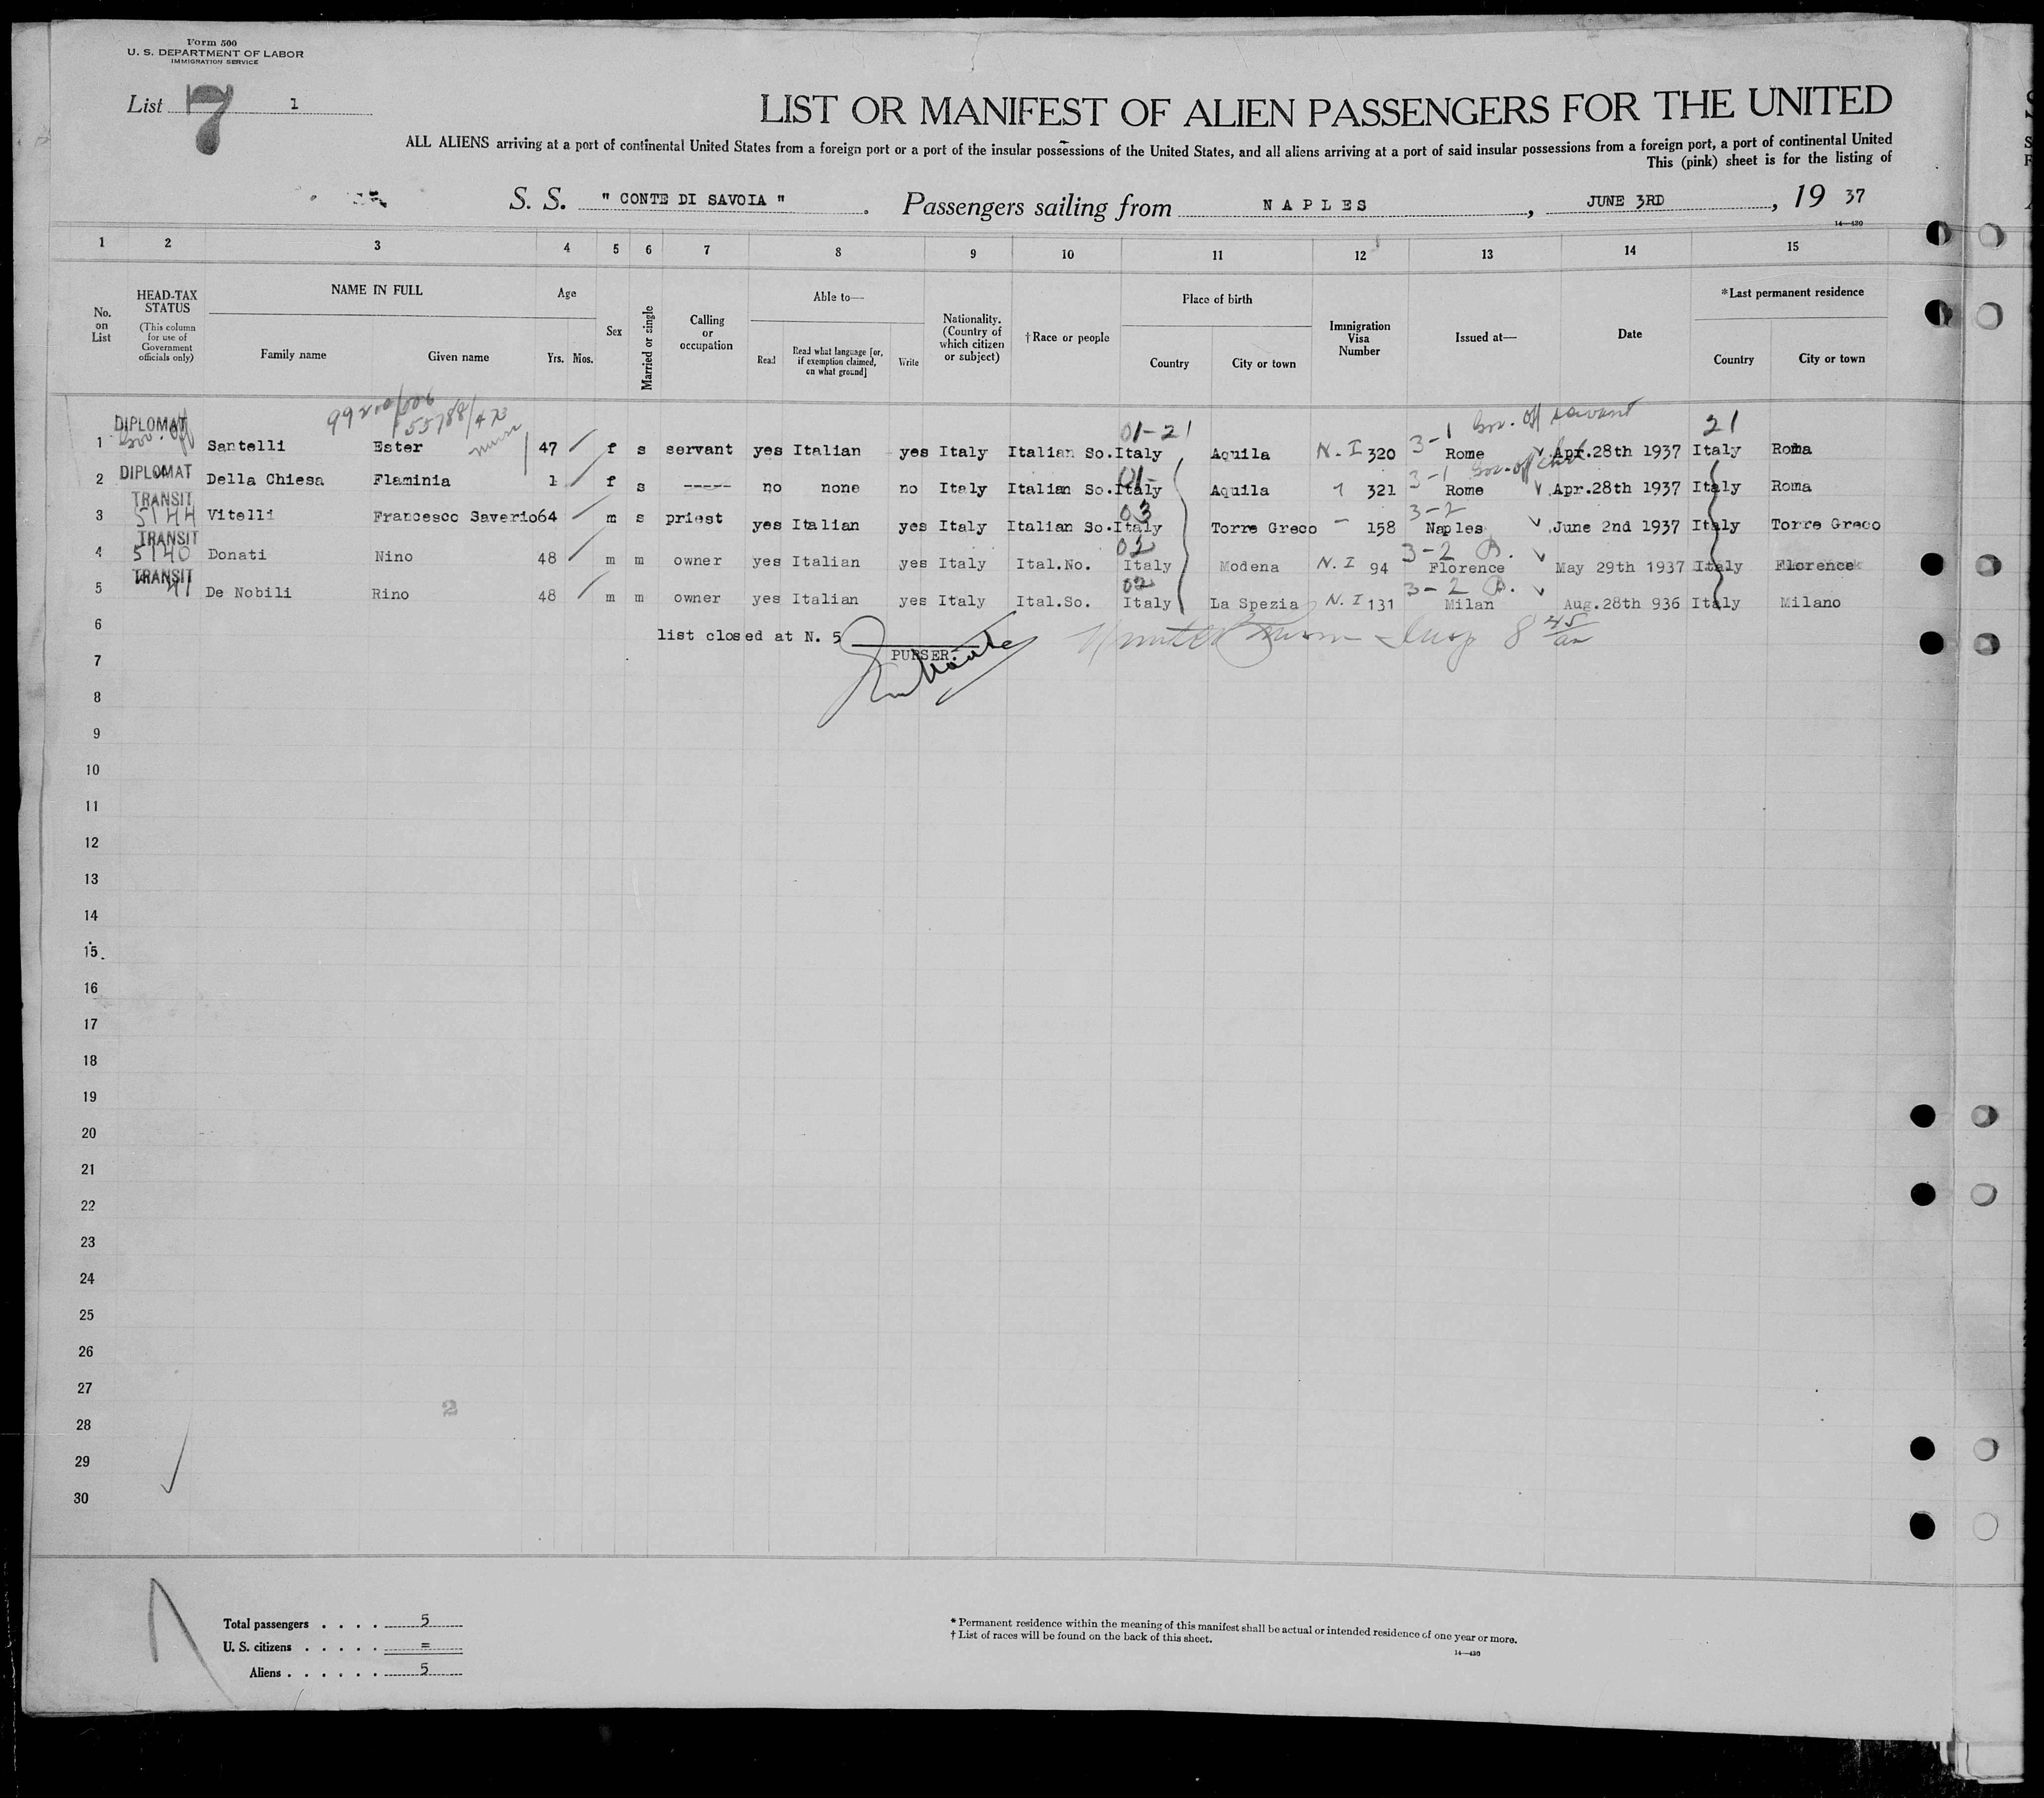 Form 500
U. S. DEPARTMENT OF LABOR
IMMIGRATION SERVICE
List 7 1
LIST OR MANIFEST OF ALIEN PASSENGERS FOR THE UNITED
ALL ALIENS arriving at a port of continental United States from a foreign port or a port of the insular possessions of the United States, and all aliens arriving at a port of said insular possessions from a foreign port, a port of continental United
This (pink) sheet is for the listing of
S. S. " CONTE DI SAVOIA " . Passengers sailing from NAPLES , JUNE 3RD , 19 37
14—430
1 2 3 4 5 6 7 8 9 10 11 12 13 14 15
No. on List
HEAD-TAX STATUS (This column for use of Government officials only)
NAME IN FULL
Family name Given name
Age
Yrs. Mos.
Sex
Married or single
Calling or occupation
Able to—
Read Read what language [or, if exemption claimed, on what ground] Write
Nationality. (Country of which citizen or subject)
†Race or people
Place of birth
Country City or town
Immigration Visa Number
Issued at—
Date
*Last permanent residence
Country City or town
99200/606
55788/472
01-21 3-1 Gov. off servant 21
1 DIPLOMAT Gov. off Santelli Ester nurse 47 f s servant yes Italian yes Italy Italian So. Italy Aquila N. I 320 Rome Apr.28th 1937 Italy Roma
01- 3-1 Gov. off
2 DIPLOMAT Della Chiesa Flaminia 1 f s ----- no none no Italy Italian So. Italy Aquila 321 Rome Apr.28th 1937 Italy Roma
03 3-2
3 TRANSIT 5144 Vitelli Francesco Saverio 64 m s priest yes Italian yes Italy Italian So. Italy Torre Greco 158 Naples June 2nd 1937 Italy Torre Greco
02 3-2 B.
4 TRANSIT 5140 Donati Nino 48 m m owner yes Italian yes Italy Ital.No. Italy Modena N. I 94 Florence May 29th 1937 Italy Florence
02 3-2 B.
5 TRANSIT 41 De Nobili Rino 48 m m owner yes Italian yes Italy Ital.So. Italy La Spezia N. I 131 Milan Aug.28th 936 Italy Milano
6 list closed at N. 5
7 PURSER
Insp 8 45 am
8
9
10
11
12
13
14
15
16
17
18
19
20
21
22
23
24
25
26
27
2
28
29
30
Total passengers . . . . 5
U. S. citizens . . . . . =
Aliens . . . . . . 5
* Permanent residence within the meaning of this manifest shall be actual or intended residence of one year or more.
† List of races will be found on the back of this sheet.
14—430